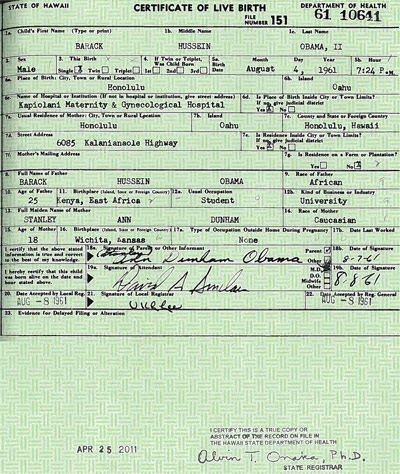 STATE OF HAWAII CERTIFICATE OF LIVE BIRTH DEPARTMENT OF HEALTH
FILE NUMBER 151 61 10641
1a. Child's First Name (Type or print) 1b. Middle Name 1c. Last Name
BARACK HUSSEIN OBAMA, II
2. Sex 3. This Birth 4. If Twin or Triplet, Was Child Born 5a. Birth Date Month Day Year 5b. Hour
Male Single X Twin Triplet 1st 2nd 3rd August 4, 1961 7:24 P.M.
6a. Place of Birth: City, Town or Rural Location 6b. Island
Honolulu Oahu
6c. Name of Hospital or Institution (If not in hospital or institution, give street address) 6d. Is Place of Birth Inside City or Town Limits? If no, give judicial district
Kapiolani Maternity & Gynecological Hospital Yes X No
7a. Usual Residence of Mother: City, Town or Rural Location 7b. Island 7c. County and State or Foreign Country
Honolulu Oahu Honolulu, Hawaii
7d. Street Address 7e. Is Residence Inside City or Town Limits? If no, give judicial district
6085 Kalanianaole Highway Yes X No
7f. Mother's Mailing Address 7g. Is Residence on a Farm or Plantation?
Yes No X
8. Full Name of Father 9. Race of Father
BARACK HUSSEIN OBAMA African
10. Age of Father 11. Birthplace (Island, State or Foreign Country) 12a. Usual Occupation 12b. Kind of Business or Industry
25 Kenya, East Africa Student University
13. Full Maiden Name of Mother 14. Race of Mother
STANLEY ANN DUNHAM Caucasian
15. Age of Mother 16. Birthplace (Island, State or Foreign Country) 17a. Type of Occupation Outside Home During Pregnancy 17b. Date Last Worked
18 Wichita, Kansas None
I certify that the above stated information is true and correct to the best of my knowledge. 18a. Signature of Parent or Other Informant Parent Other 18b. Date of Signature
(Stanley) Ann Dunham Obama 8-7-61
I hereby certify that this child was born alive on the date and hour stated above. 19a. Signature of Attendant M.D. D.O. Midwife Other 19b. Date of Signature
David A Sinclair 8-8-61
20. Date Accepted by Local Reg. 21. Signature of Local Registrar 22. Date Accepted by Reg. General
AUG -8 1961 U K Lee AUG -8 1961
23. Evidence for Delayed Filing or Alteration
APR 25 2011
I CERTIFY THIS IS A TRUE COPY OR
ABSTRACT OF THE RECORD ON FILE IN
THE HAWAII STATE DEPARTMENT OF HEALTH
Alvin T. Onaka, Ph.D.
STATE REGISTRAR